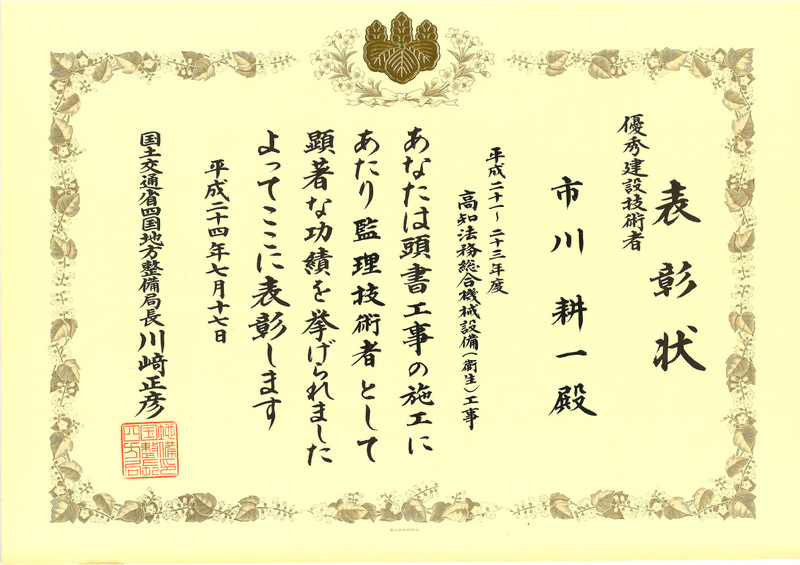 表彰状
優秀建設技術者
市川耕一殿
平成二十一～二十三年度
高知法務総合機械設備（衛生）工事
あなたは頭書工事の施工に
あたり監理技術者として
顕著な功績を挙げられました
よってここに表彰します
平成二十四年七月十七日
国土交通省四国地方整備局長川﨑正彦